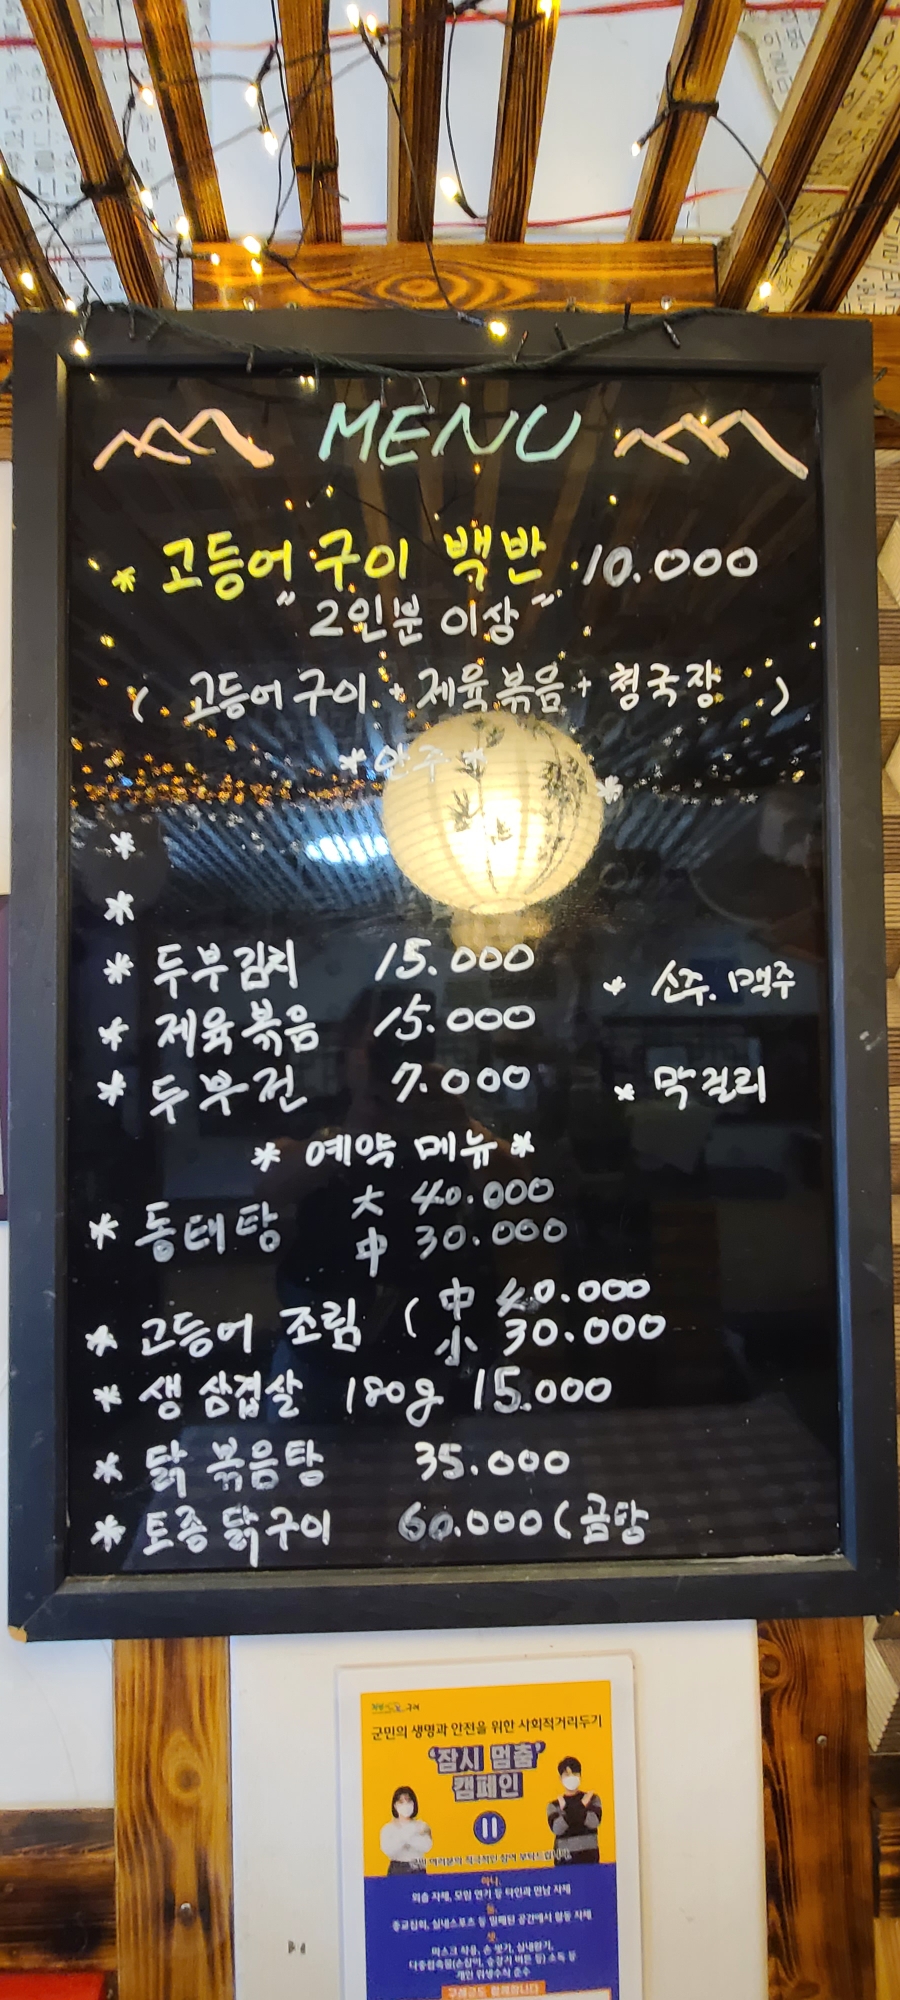 MENU
* 고등어 구이 백반 10.000
" 2인분 이상 "
( 고등어구이 + 제육볶음 + 청국장 )
* 안주 *
*
*
*
* 두부김치 15.000
* 소주. 맥주
* 제육볶음 15.000
* 두부전 7.000
* 막걸리
* 예약 메뉴 *
* 동태탕 大 40.000
中 30.000
* 고등어 조림 ( 中 40.000
小 30.000
* 생 삼겹살 180g 15.000
* 닭 볶음탕 35.000
* 토종닭구이 60.000 ( 곰탕
군민의 생명과 안전을 위한 사회적거리두기
'잠시 멈춤'
캠페인
군민 여러분의 적극적인 참여 부탁드립니다.
하나.
외출 자제, 모임 연기 등 타인과 만남 자제
둘.
종교집회, 실내스포츠 등 밀폐된 공간에서 활동 자제
셋.
마스크 착용, 손 씻기, 실내환기,
다중접촉물(손잡이, 승강기 버튼 등) 소독 등
개인 위생수칙 준수